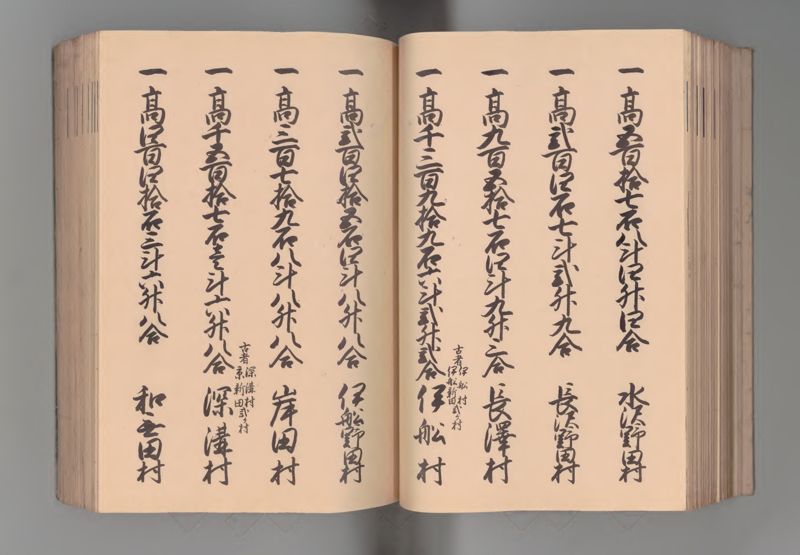 一高五百拾七石八斗四升四合 水沢野田村
一高弐百四石七斗弐升九合 長沢野田村
一高九百五拾七石四斗九升二合 長澤村
一高千三百九拾九石六斗弐升弐合 伊舩村
古者伊舩村
伊舩新田弐ケ村
一高弐百四拾五石四斗八升八合 伊舩野田村
一高三百七拾九石八斗八升八合 岸田村
一高千五百拾七石壱斗六升八合 深溝村
古者深溝村
京新田弐ケ村
一高四百四拾石三斗六升八合 和無田村